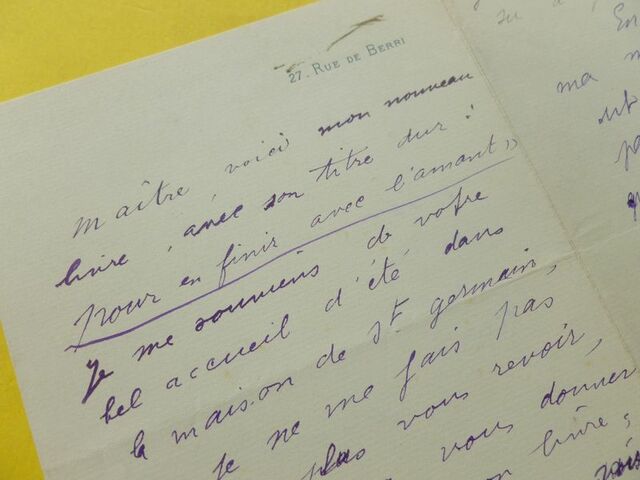 27. RUE DE BERRI
maître, voici mon nouveau
livre, avec son titre dur :
pour en finir avec l'amant »
Je me souviens de votre
bel accueil d'été dans
la maison de St germain,
je ne me fais pas
plus vous revoir,
vous donner
livre ;
En
ma